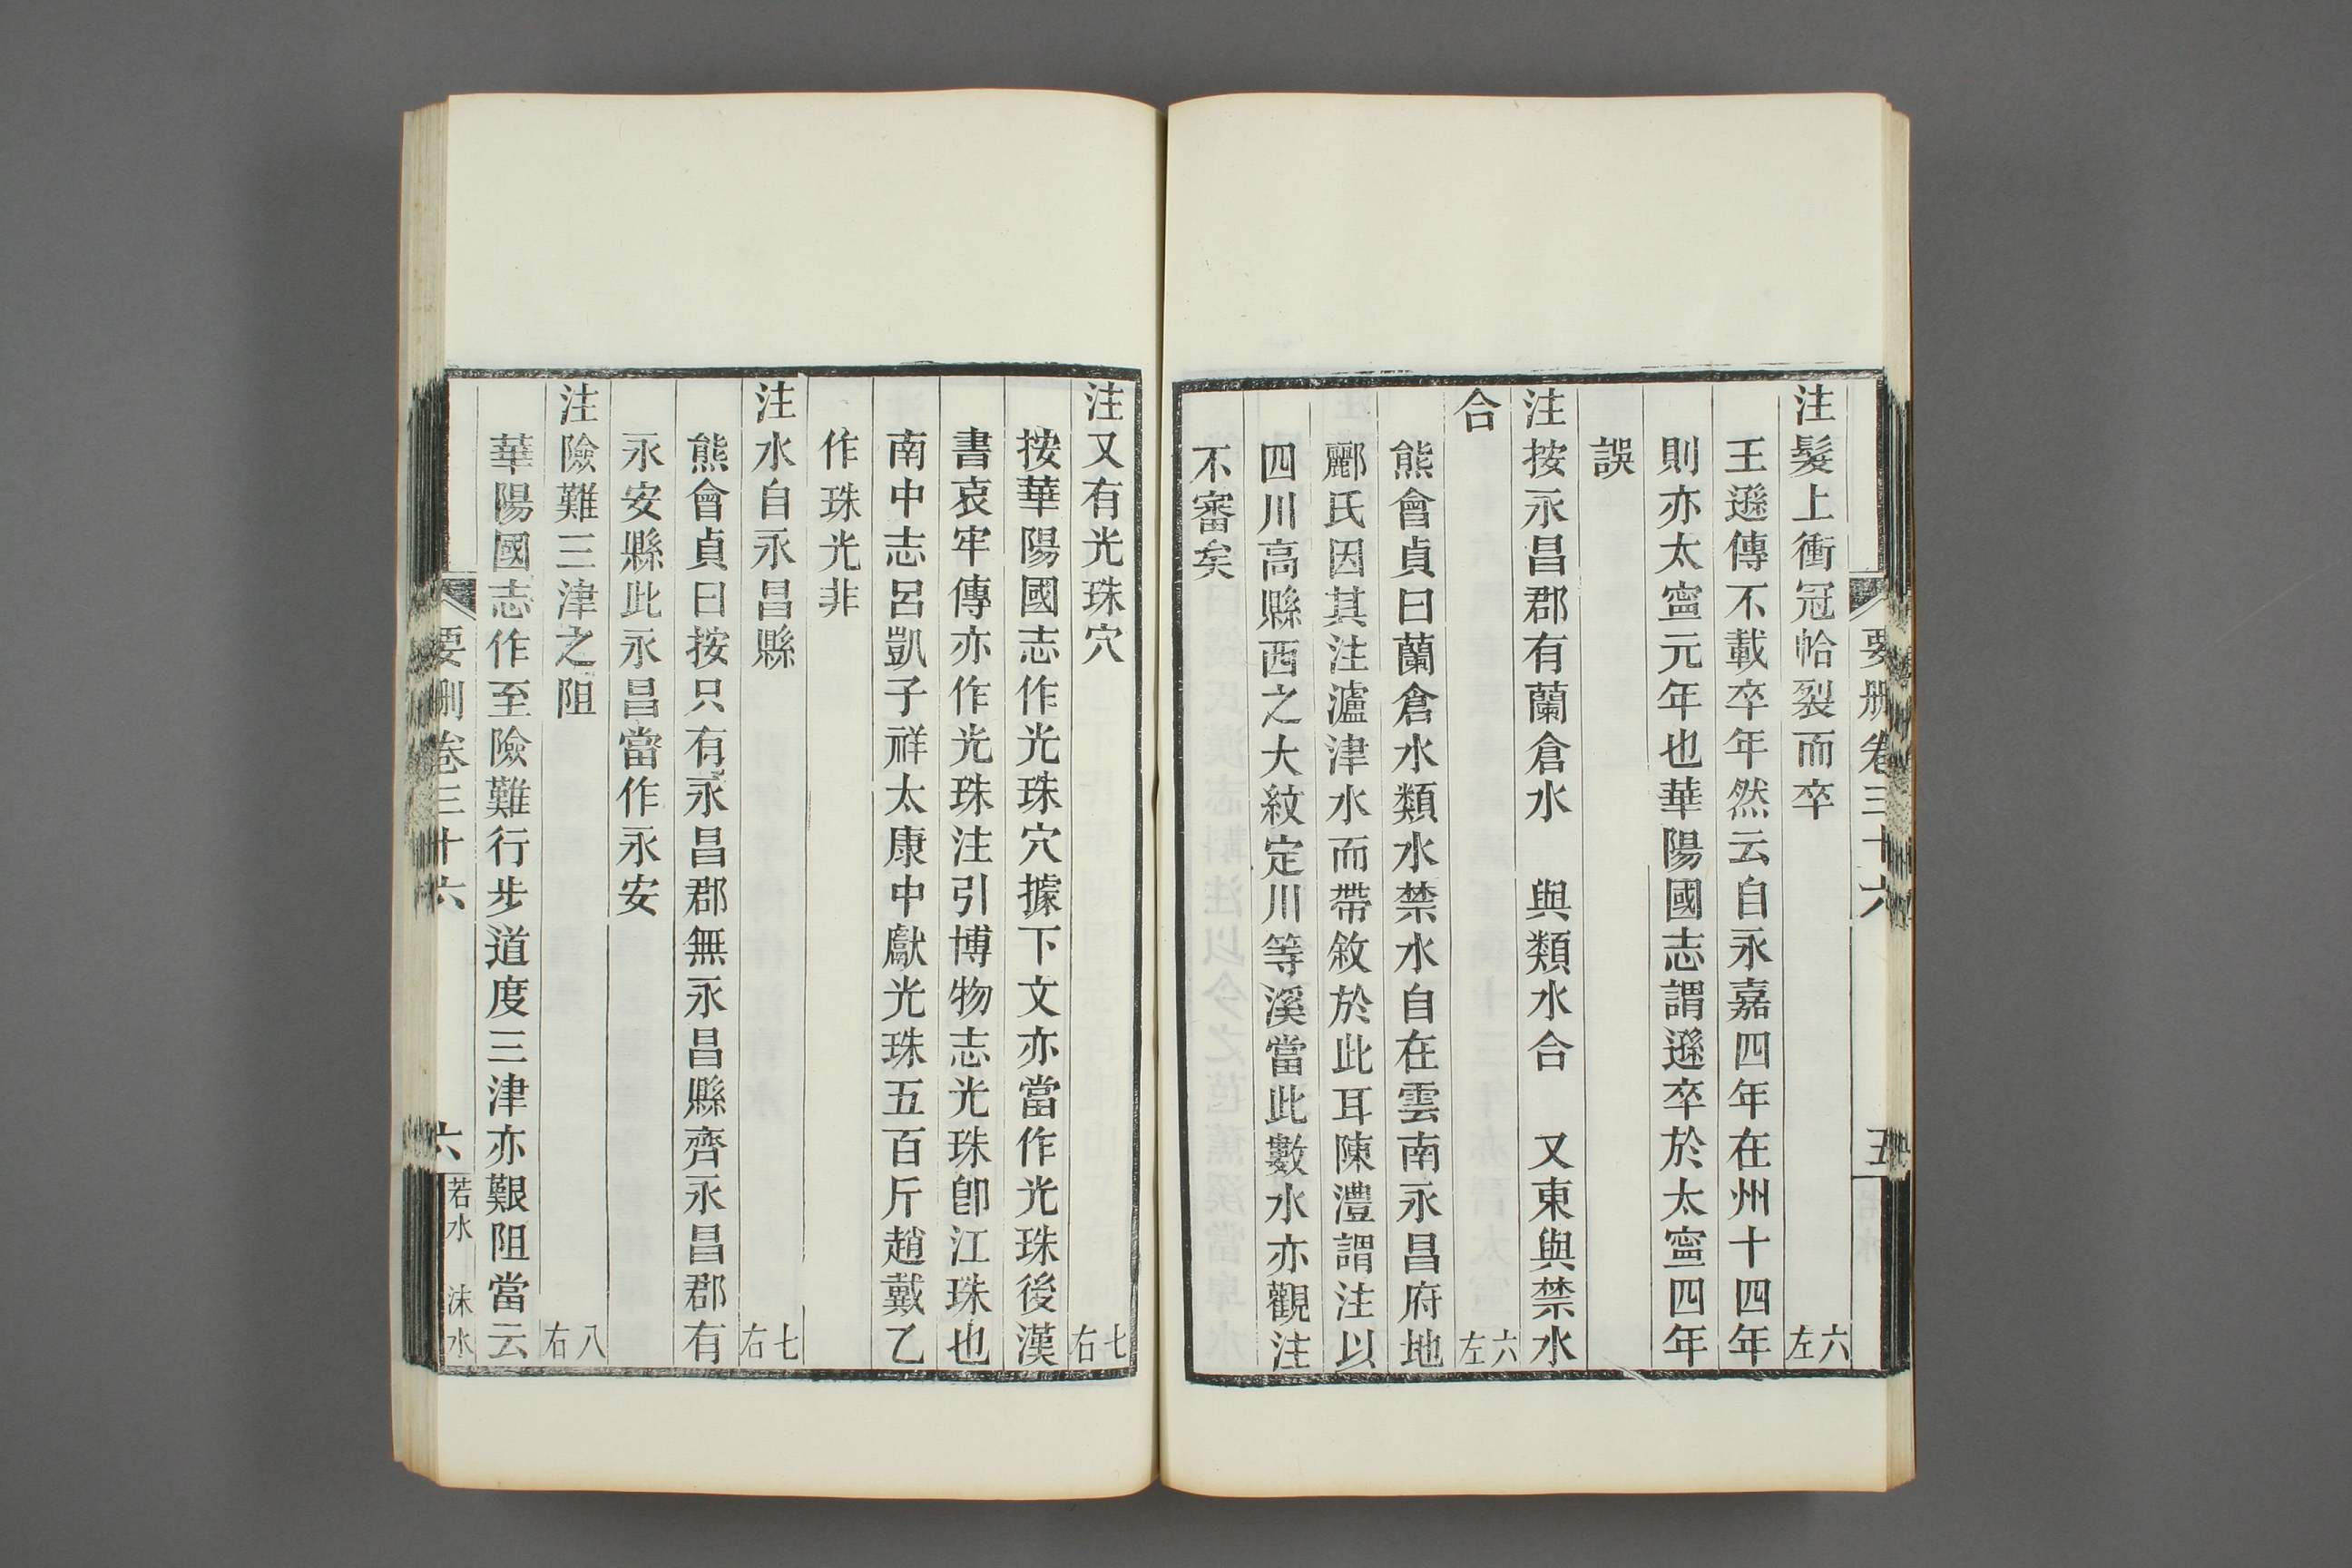 要刪卷三十六
五
注髮上衝冠帢裂而卒 六左
王遜傳不載卒年然云自永嘉四年在州十四年
則亦太寍元年也華陽國志謂遜卒於太寍四年
誤
注按永昌郡有蘭倉水 與類水合 又東與禁水
合 六左
熊會貞曰蘭倉水類水禁水自在雲南永昌府地
酈氏因其注瀘津水而帶敘於此耳陳澧謂注以
四川高縣西之大紋定川等溪當此數水亦觀注
不審矣
注又有光珠穴 七右
按華陽國志作光珠穴據下文亦當作光珠後漢
書哀牢傳亦作光珠注引博物志光珠卽江珠也
南中志呂凱子祥太康中獻光珠五百斤趙戴乙
作珠光非
注水自永昌縣 七右
熊會貞曰按只有永昌郡無永昌縣齊永昌郡有
永安縣此永昌當作永安
注險難三津之阻 八右
華陽國志作至險難行步道度三津亦艱阻當云
要刪卷三十六
六
若水 沫水